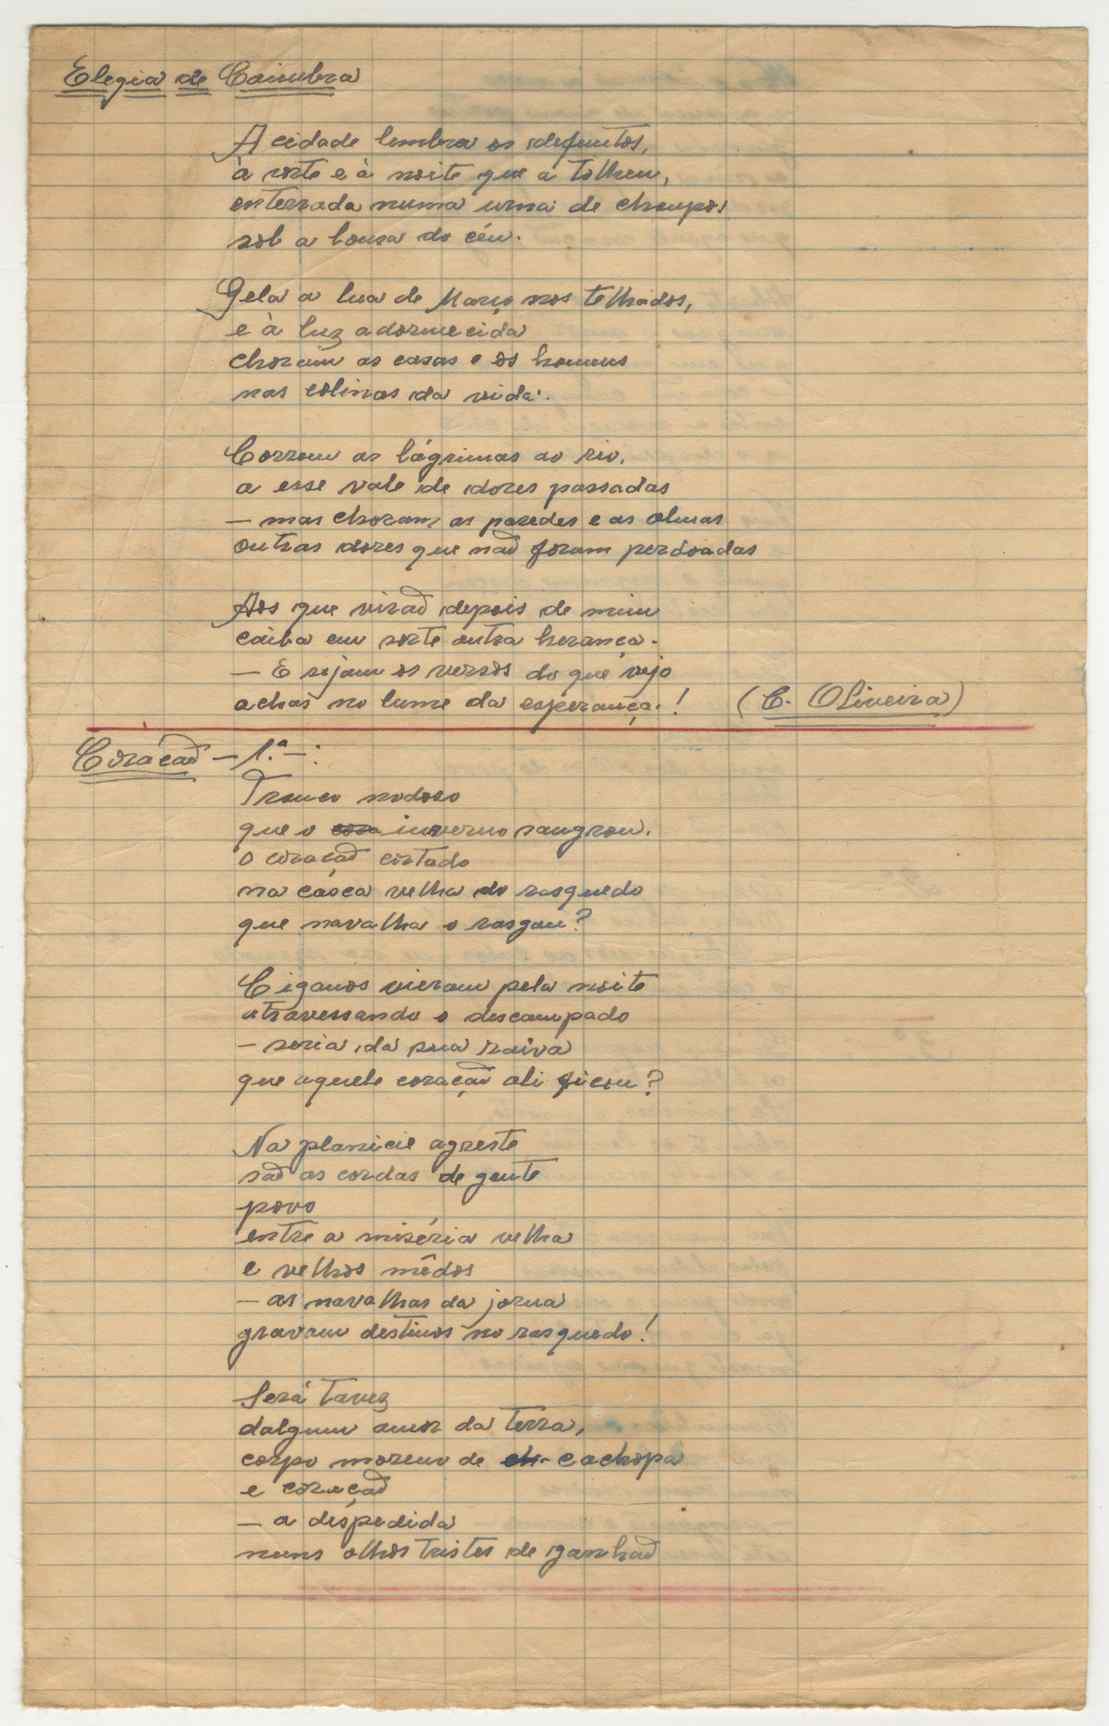 Elegia de Coimbra
A cidade lembra os defuntos,
à sorte e à noite que a tolhem,
enterrada numa urna de choupos
sob a lousa do céu.
Gela a lua de Março nos telhados,
e à luz adormecida
choram as casas e os homens
nas colinas da vida.
Correm as lágrimas ao rio,
a esse vale de dores passadas
— mas choram as paredes e as almas
outras dores que não foram perdoadas
Aos que virão depois de mim
caiba em sorte outra herança.
— E sejam os versos do que vejo
achas no lume da esperança. ! (C. Oliveira)
Coração — 1.ª — :
Tronco nodoso
que o inverno sangrou.
O coração cortado
na casca velha do rasquedo
que navalha o rasgou?
Ciganos vieram pela noite
atravessando o descampado
— seria da sua raiva
que aquele coração ali ficou?
Na planicie agreste
são as cordas de gente
povo
entre a miséria velha
e velhos mêdos
— as navalhas da jorna
gravam destinos no rasquedo!
Será tavez
dalgum amor da terra,
corpo moreno de cachopa
e coração
— a despedida
nuns olhos tristes de ganhão